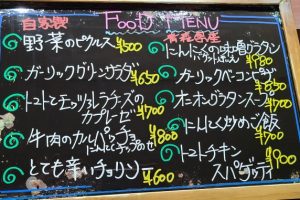 FOOD MENU
自家製
野菜のピクルス ¥500
ガーリックグリーンサラダ ¥650
トマトとモッツァレラチーズの
カプレーゼ ¥700
牛肉のカルパッチョ ¥800
にんにくチップのせ
とても辛いチョリソー ¥600
青森県産
にんにくの味噌グラタン
¥780
ガーリックベーコンピザ
¥850
オニオングラタンスープ
¥700
にんにく炒めご飯
¥500
トマトチキン
スパゲッティ ¥900